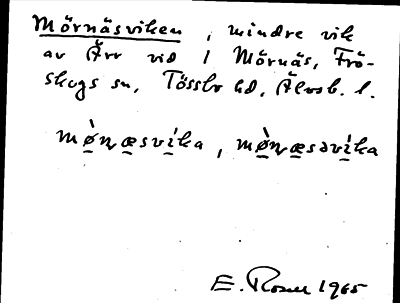 Mörnäsviken, mindre vik
av Ärr vid 1 Mörnäs, Frö-
skogs sn, Tössbo hd, Älvsb. l.
mø̀ɳæsvika, mø̀ɳæsəvika
E. Rosell 1965